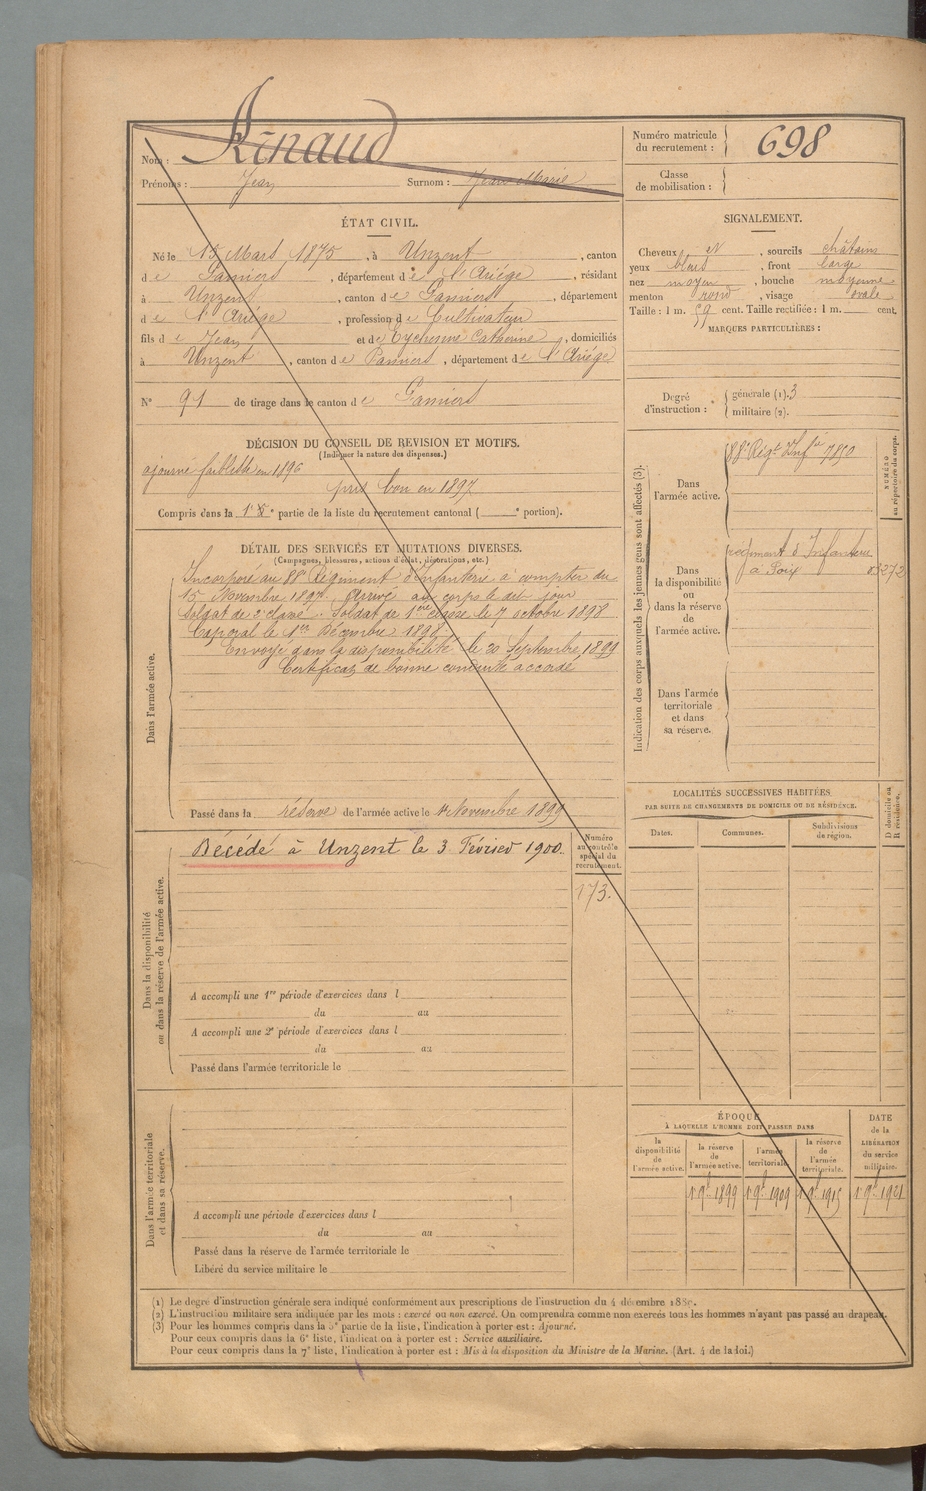 Nom : Arnaud
Prénoms : Jean Surnom : Jean Marie
Numéro matricule
du recrutement : 698
Classe
de mobilisation :
ÉTAT CIVIL.
Né le 15 Mars 1875, à Unzent, canton
de Pamiers, département de l'Ariège, résidant
à Unzent, canton de Pamiers, département
de l'Ariège, profession de Cultivateur
fils de Jean et de Eychenne Catherine, domiciliés
à Unzent, canton de Pamiers, département de l'Ariège
N° 91 de tirage dans le canton de Pamiers
DÉCISION DU CONSEIL DE REVISION ET MOTIFS.
(Indiquer la nature des dispenses.)
ajourné faiblesse en 1896
pris bon en 1897
Compris dans la 1re partie de la liste du recrutement cantonal ( e portion).
SIGNALEMENT.
Cheveux et, sourcils châtains
yeux bleus, front large
nez moyen, bouche moyenne
menton rond, visage ovale
Taille : 1 m. 59 cent. Taille rectifiée : 1 m. cent.
MARQUES PARTICULIÈRES :
Degré
d'instruction :
générale (1). 3
militaire (2).
DÉTAIL DES SERVICES ET MUTATIONS DIVERSES.
(Campagnes, blessures, actions d'éclat, décorations, etc.)
Dans l'armée active.
Incorporé au 88e Régiment d'Infanterie à compter du
15 Novembre 1897. Arrivé au corps le dit jour
Soldat de 2e classe. Soldat de 1ère classe le 7 octobre 1898
Caporal le 1er Décembre 1898
Envoyé dans la disponibilité le 20 Septembre 1899
Certificat de bonne conduite accordé
Passé dans la réserve de l'armée active le 1er Novembre 1899
Indication des corps auxquels les jeunes gens sont affectés (3).
NUMÉRO
au répertoire du corps.
Dans
l'armée active.
88e Régt Infie 7850
Dans
la disponibilité
ou
dans la réserve
de
l'armée active.
régiment d'Infanterie
à Foix
Dans l'armée
territoriale
et dans
sa réserve.
LOCALITÉS SUCCESSIVES HABITÉES
PAR SUITE DE CHANGEMENTS DE DOMICILE OU DE RÉSIDENCE.
Dates.
Communes.
Subdivisions
de région.
D domicile ou
R résidence.
Dans la disponibilité
ou dans la réserve de l'armée active.
Décédé à Unzent le 3 Février 1900.
Numéro
au contrôle
spécial du
recrutement.
173.
A accompli une 1re période d'exercices dans l
du au
A accompli une 2e période d'exercices dans l
du au
Passé dans l'armée territoriale le
Dans l'armée territoriale
et dans sa réserve.
A accompli une période d'exercices dans l
du au
Passé dans la réserve de l'armée territoriale le
Libéré du service militaire le
ÉPOQUE
À LAQUELLE L'HOMME DOIT PASSER DANS
la
disponibilité
de
l'armée active.
la réserve
de
l'armée active.
l'armée
territoriale.
la réserve
de
l'armée
territoriale.
DATE
de la
LIBÉRATION
du service
militaire.
1er 9bre 1899
1er 9bre 1909
1er 9bre 1915
1er 9bre 1921
(1) Le degré d'instruction générale sera indiqué conformément aux prescriptions de l'instruction du 4 décembre
(2) L'instruction militaire sera indiquée par les mots : exercé ou non exercé. On comprendra comme non exercés tous les hommes n'ayant pas passé au drapeau.
(3) Pour les hommes compris dans la 5e partie de la liste, l'indication à porter est : Ajourné.
Pour ceux compris dans la 6e liste, l'indication à porter est : Service auxiliaire.
Pour ceux compris dans la 7e liste, l'indication à porter est : Mis à la disposition du Ministre de la Marine. (Art. 4 de la loi.)